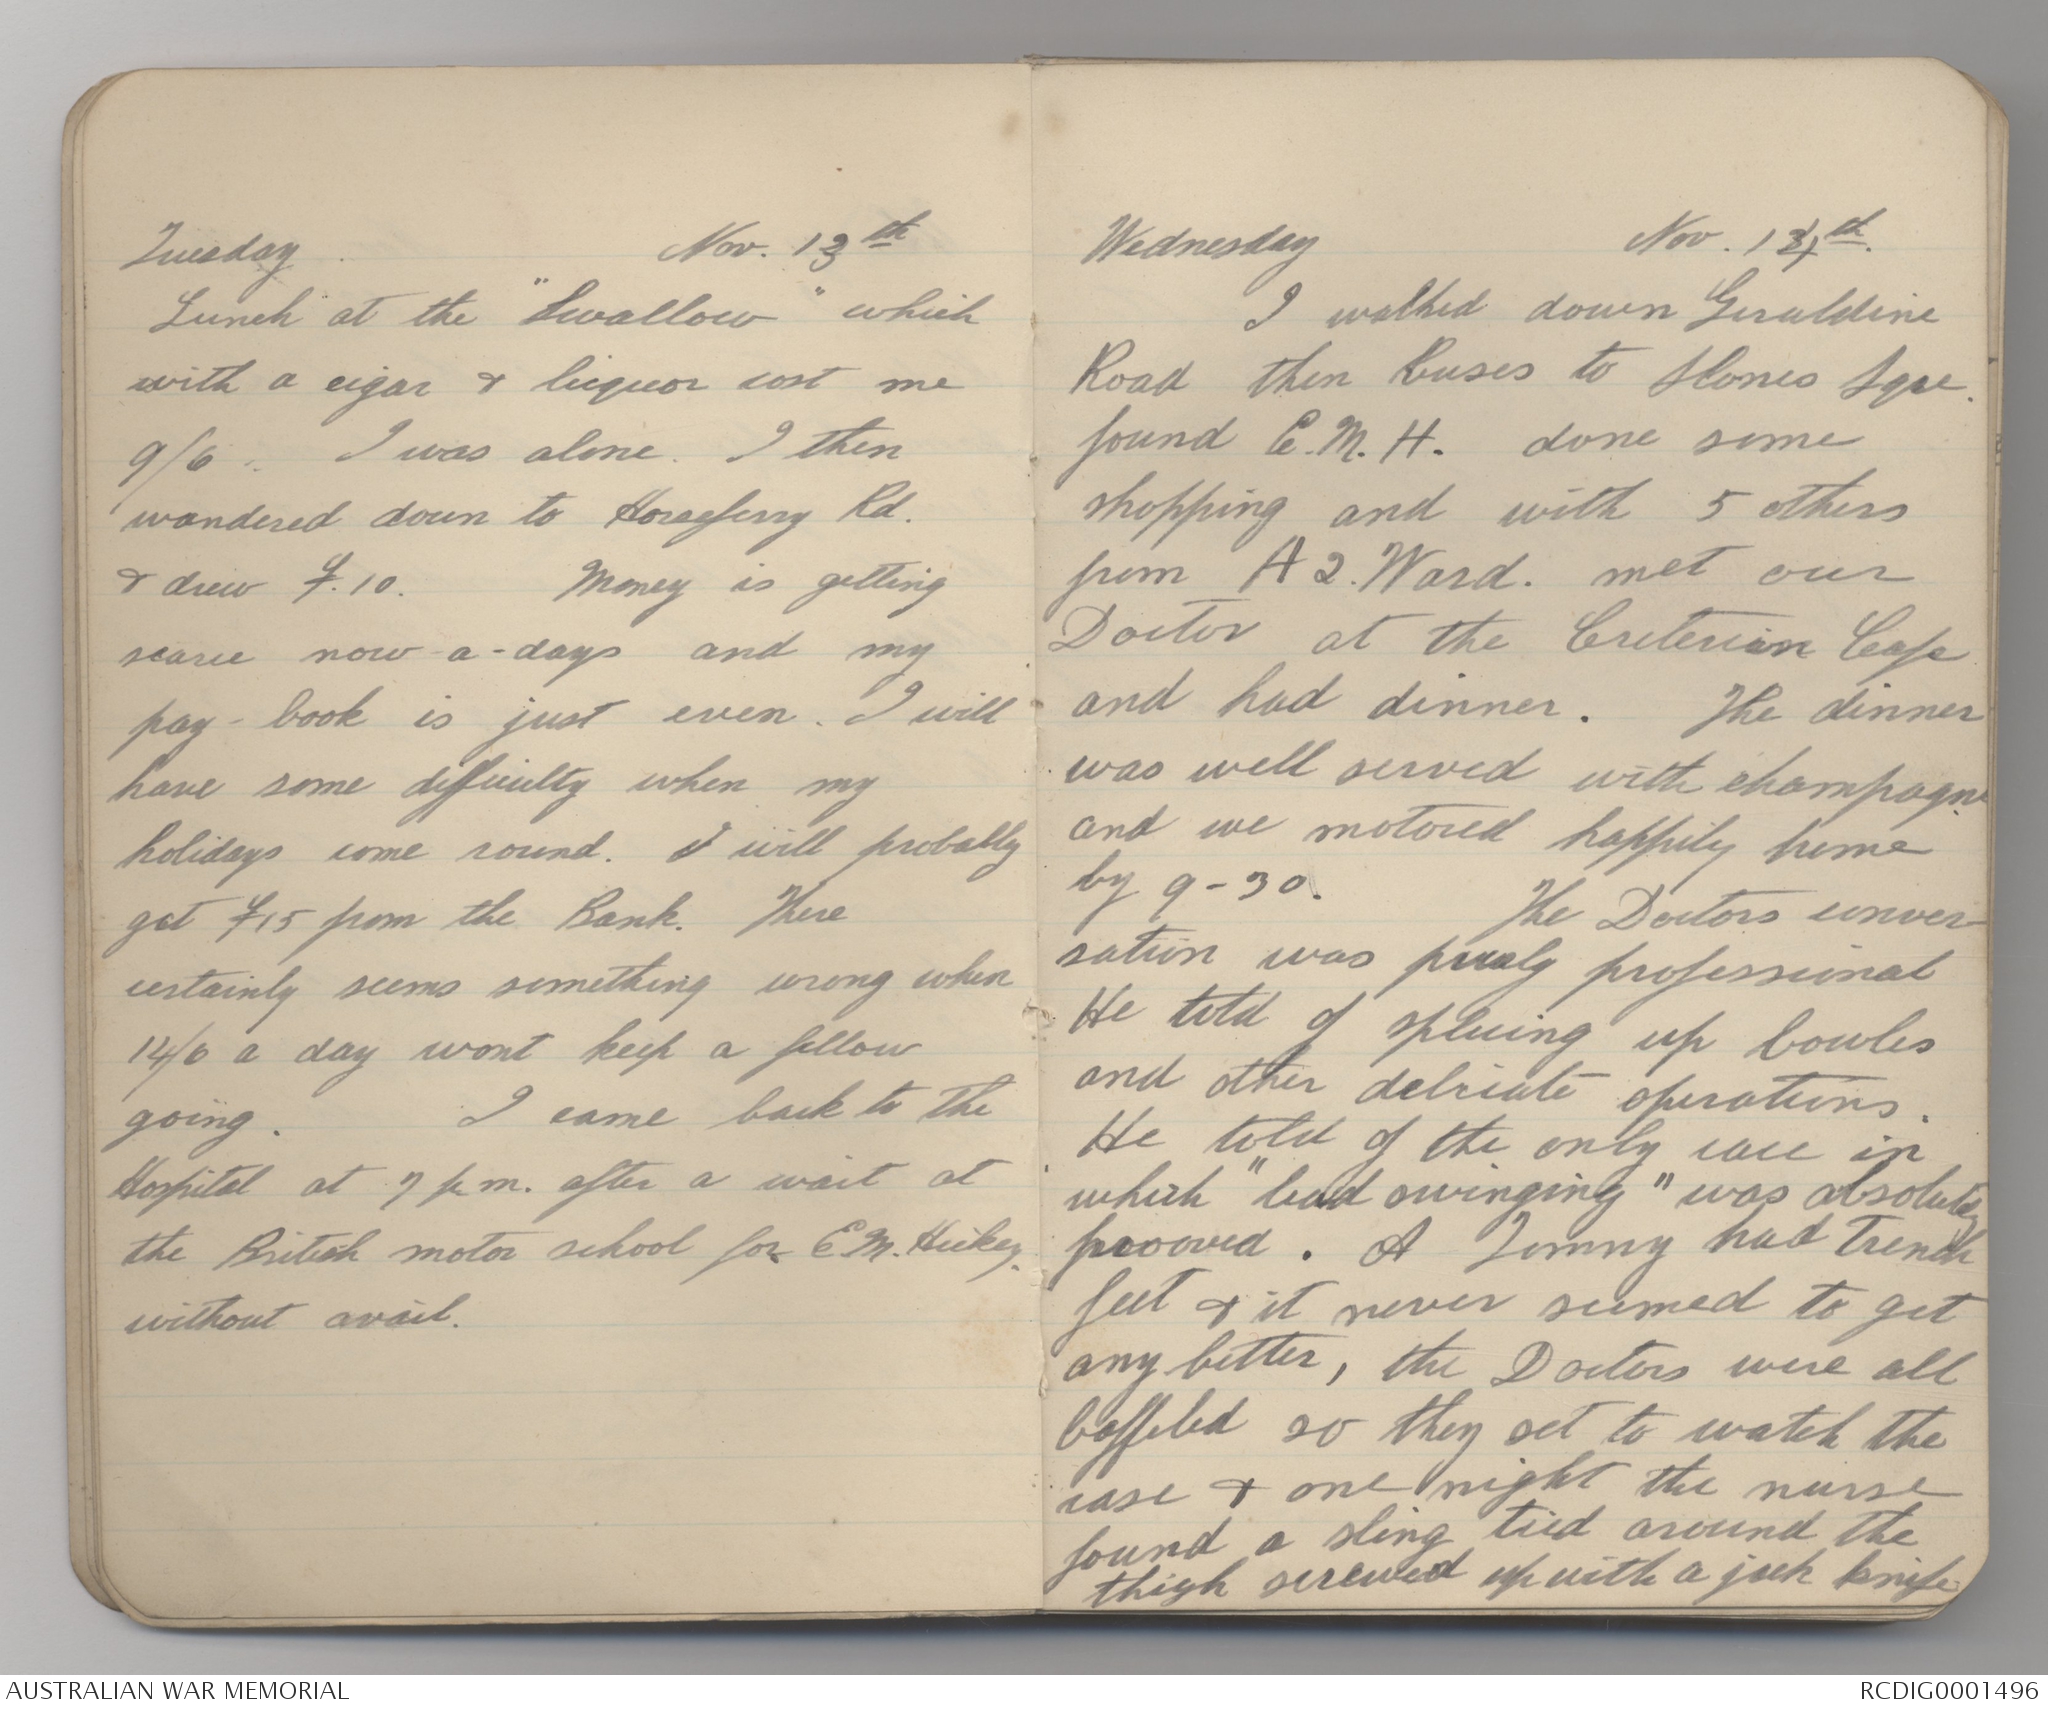 Tuesday Nov. 13th
Lunch at the "Swallow" which
with a cigar & liquor cost me
9/6. I was alone. I then
wandered down to Horseferry Rd.
& drew £10. Money is getting
scarce now-a-days and my
pay-book is just even. I will
have some difficulty when my
holidays come round. I will probably
get £15 from the Bank. There
certainly seems something wrong when
14/6 a day wont keep a fellow
going. I came back to the
Hospital at 7 p.m. after a wait at
the British motor school for E.M. Hickey.
without avail.
Wednesday Nov. 14th.
I walked down Geraldine
Road then Buses to Slones Sqre.
found E.M.H. done some
shopping and with 5 others
from A2.Ward. met our
Doctor at the Criterion Cafe
and had dinner. The dinner
was well served with champagne
and we motored happily home
by 9-30. The Doctors conver-
sation was purely professional
He told of splicing up bowles
and other delciate operations.
He told of the only case in
which "lead swinging" was absolutely
prooved. A Tommy had trench
feet & it never seemed to get
any better, the Doctors were all
baffled so they set to watch the
case & one night the nurse
found a sling tied around the
thigh screwed up with a jack knife
AUSTRALIAN WAR MEMORIAL
RCDIG0001496